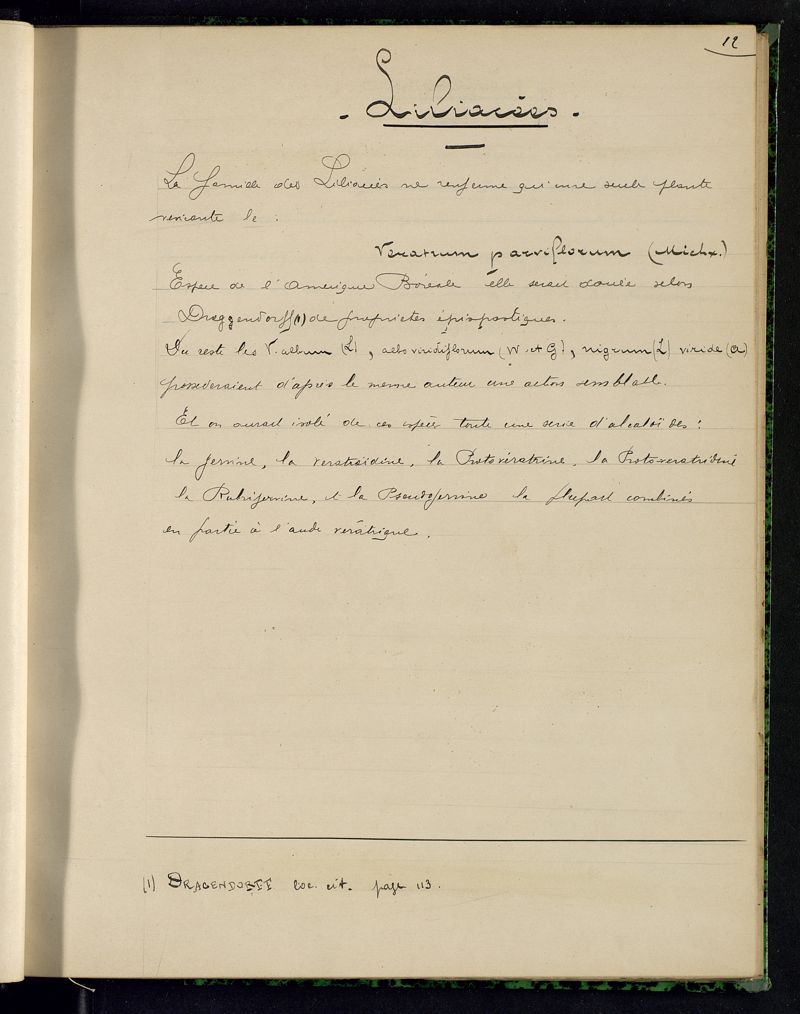 12
- Liliacées -
La famille des Liliacées ne renferme qu'une seule plante
vésicante le :
Veratrum parviflorum (Michx.)
Espèce de l'Amérique Boréale elle serait douée selon
Draggendorff (1) de propriétés épispastiques.
Du reste les V. album (L), albo viridiflorum (W et G), nigrum (L) viride (a)
possèderaient d'après le meme auteur une action semblable.
Et on aurait isolé de ces espèces toute une serie d'alcaloïdes :
la Jervine, la veratroïdine, la Protovératrine, la Protoveratridine
la Rubijervine, et la Pseudojervine la plupart combinés
en partie à l'acide verâtrique.
(1) DRAGENDORFF loc. cit. page 113.